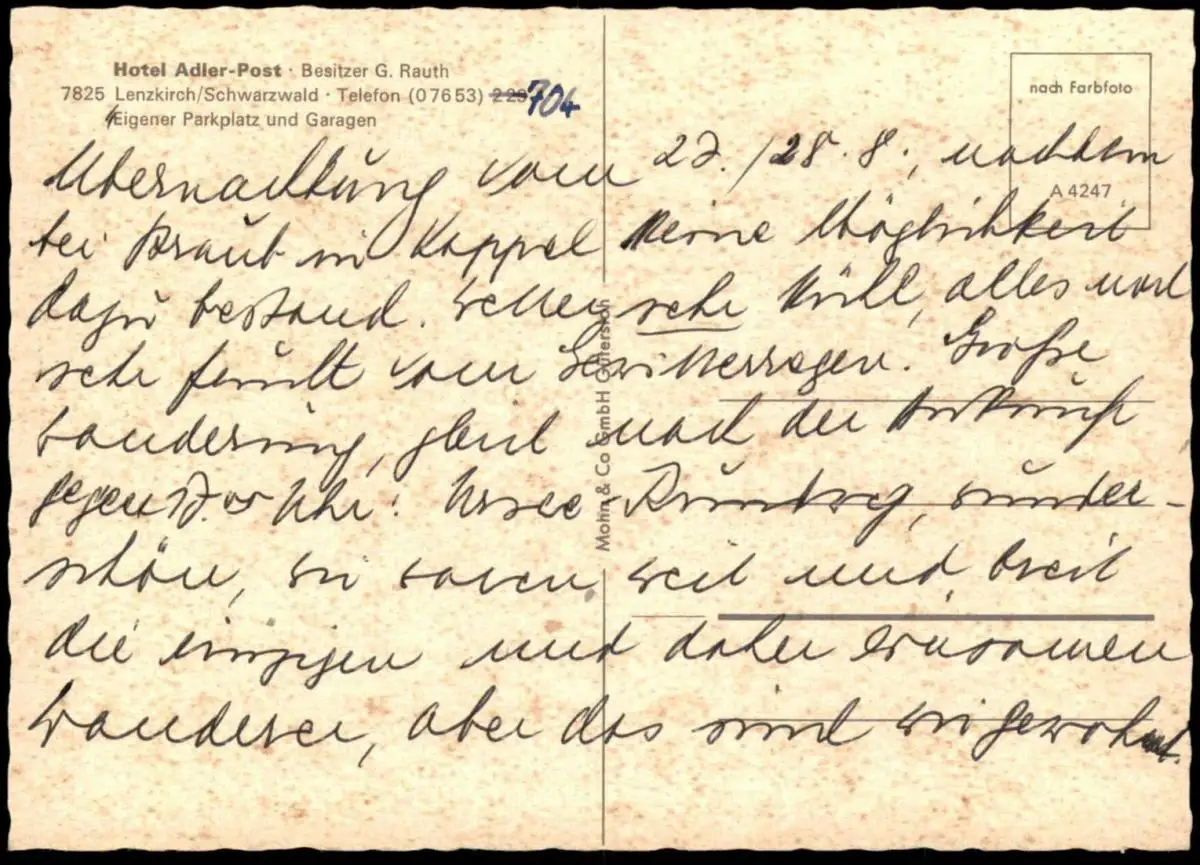 Hotel Adler-Post · Besitzer G. Rauth
7825 Lenzkirch/Schwarzwald · Telefon (07653) 704
Eigener Parkplatz und Garagen
nach Farbfoto
A 4247
Mohn & Co GmbH Gütersloh
Übernachtung vom 27./28.8., nachdem
bei Straub in Kappel keine Möglichkeit
dazu bestand. Wetter sehr kühl, alles noch
sehr feucht vom Gewitterregen. Große
Wanderung, gleich nach der Ankunft
gegen 17.00 Uhr: Ursee-Rundweg, wunder-
schön, wir waren weit und breit
die einzigen und daher einsamen
Wanderer, aber das sind wir gewohnt.